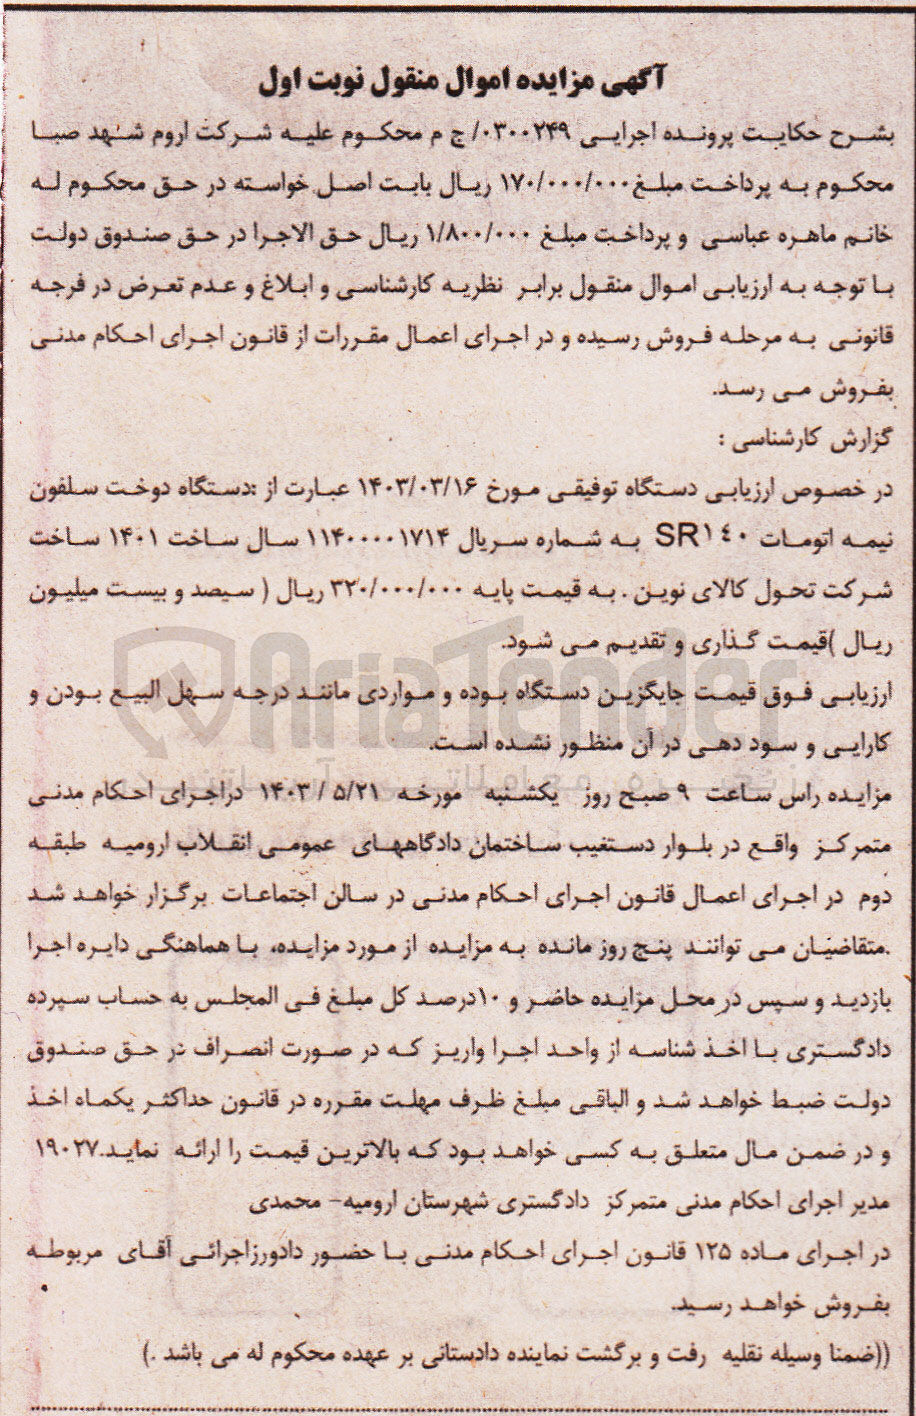 آگهی مزایده اموال منقول نوبت اول
بشرح حکایت پرونده اجرایی ۰۳۰۰۲۴۹/ ج م محکوم علیه شرکت اروم شهد صبا
محکوم به پرداخت مبلغ ۱۷۰/۰۰۰/۰۰۰ ریال بابت اصل خواسته در حق محکوم له
خانم ماهره عباسی و پرداخت مبلغ ۱/۸۰۰/۰۰۰ ریال حق الاجرا در حق صندوق دولت
با توجه به ارزیابی اموال منقول برابر نظریه کارشناسی و ابلاغ و عدم تعرض در فرجه
قانونی به مرحله فروش رسیده و در اجرای اعمال مقررات از قانون اجرای احکام مدنی
بفروش می رسد.
گزارش کارشناسی :
در خصوص ارزیابی دستگاه توفیقی مورخ ۱۴۰۳/۰۳/۱۶ عبارت از :دستگاه دوخت سلفون
نیمه اتومات SR۱٤۰ به شماره سریال ۱۱۴۰۰۰۰۱۷۱۴ سال ساخت ۱۴۰۱ ساخت
شرکت تحول کالای نوین . به قیمت پایه ۳۲۰/۰۰۰/۰۰۰ ریال ( سیصد و بیست میلیون
ریال )قیمت گذاری و تقدیم می شود.
ارزیابی فوق قیمت جایگزین دستگاه بوده و مواردی مانند درجه سهل البیع بودن و
کارایی و سود دهی در آن منظور نشده است.
مزایده راس ساعت ۹ صبح روز یکشنبه مورخه ۱۴۰۳ / ۵/۲۱ دراجرای احکام مدنی
متمرکز واقع در بلوار دستغیب ساختمان دادگاههای عمومی انقلاب ارومیه طبقه
دوم در اجرای اعمال قانون اجرای احکام مدنی در سالن اجتماعات برگزار خواهد شد
.متقاضیان می توانند پنج روز مانده به مزایده از مورد مزایده، با هماهنگی دایره اجرا
بازدید و سپس در محل مزایده حاضر و ۱۰درصد کل مبلغ فی المجلس به حساب سپرده
دادگستری با اخذ شناسه از واحد اجرا واریز که در صورت انصراف در حق صندوق
دولت ضبط خواهد شد و الباقی مبلغ ظرف مهلت مقرره در قانون حداکثر یکماه اخذ
و در ضمن مال متعلق به کسی خواهد بود که بالاترین قیمت را ارائه نماید.۱۹۰۲۷
مدیر اجرای احکام مدنی متمرکز دادگستری شهرستان ارومیه- محمدی
در اجرای ماده ۱۲۵ قانون اجرای احکام مدنی با حضور دادورزاجرائی آقای مربوطه
بفروش خواهد رسید.
((ضمنا وسیله نقلیه رفت و برگشت نماینده دادستانی بر عهده محکوم له می باشد .)
AriaTender